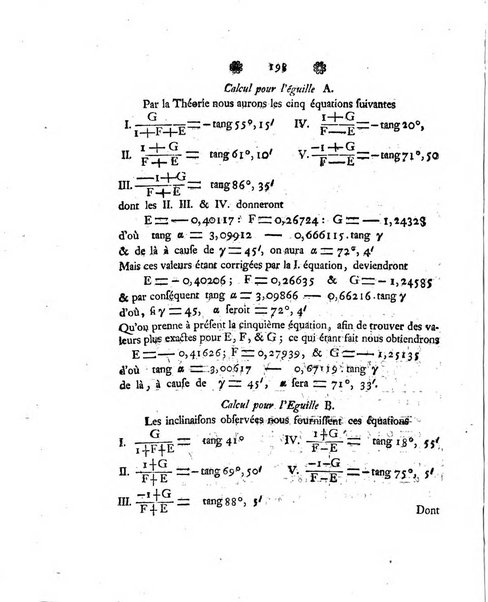 198
Calcul pour l'éguille A.
Par la Théorie nous aurons les cinq équations suivantes
I. G/(1+F+E) = −tang 55°, 15′ IV. (1+G)/(F−E) = −tang 20°,
II. (1+G)/(F+E) = −tang 61°, 10′ V. (−1+G)/(F−E) = −tang 71°, 50
III. (−1+G)/(F+E) = tang 86°, 35′
dont les II. III. & IV. donneront
E = − 0,40117: F = 0,26724: G = − 1,24328
d'où tang α = 3,09912 − 0,666115. tang γ
& de là à cause de γ = 45′, on aura α = 72°, 4′
Mais ces valeurs étant corrigées par la I. équation, deviendront
E = − 0,40206; F = 0,26635 & G = − 1,24585
& par conséquent tang α = 3,09866 − 0,66216. tang γ
d'où, si γ = 45, α seroit = 72°, 4′
Qu'on prenne à présent la cinquième équation, afin de trouver des va-
leurs plus exactes pour E, F, & G; ce qui étant fait nous obtiendrons
E = − 0,41626; F = 0,27939, & G = − 1,25135
d'où tang α = 3,00617 − 0,67119: tang γ
de là, à cause de γ = 45′, α sera = 71°, 33′.
Calcul pour l'Eguille B.
Les inclinaisons observées nous fournissent ces équations
I. G/(1+F+E) = tang 41° IV. (1+G)/(F−E) = tang 18°, 55′
II. (1+G)/(F+E) = −tang 69°, 50′ V. (−1−G)/(F−E) = −tang 75°, 5′
III. (−1+G)/(F+E) = tang 88°, 5′
Dont